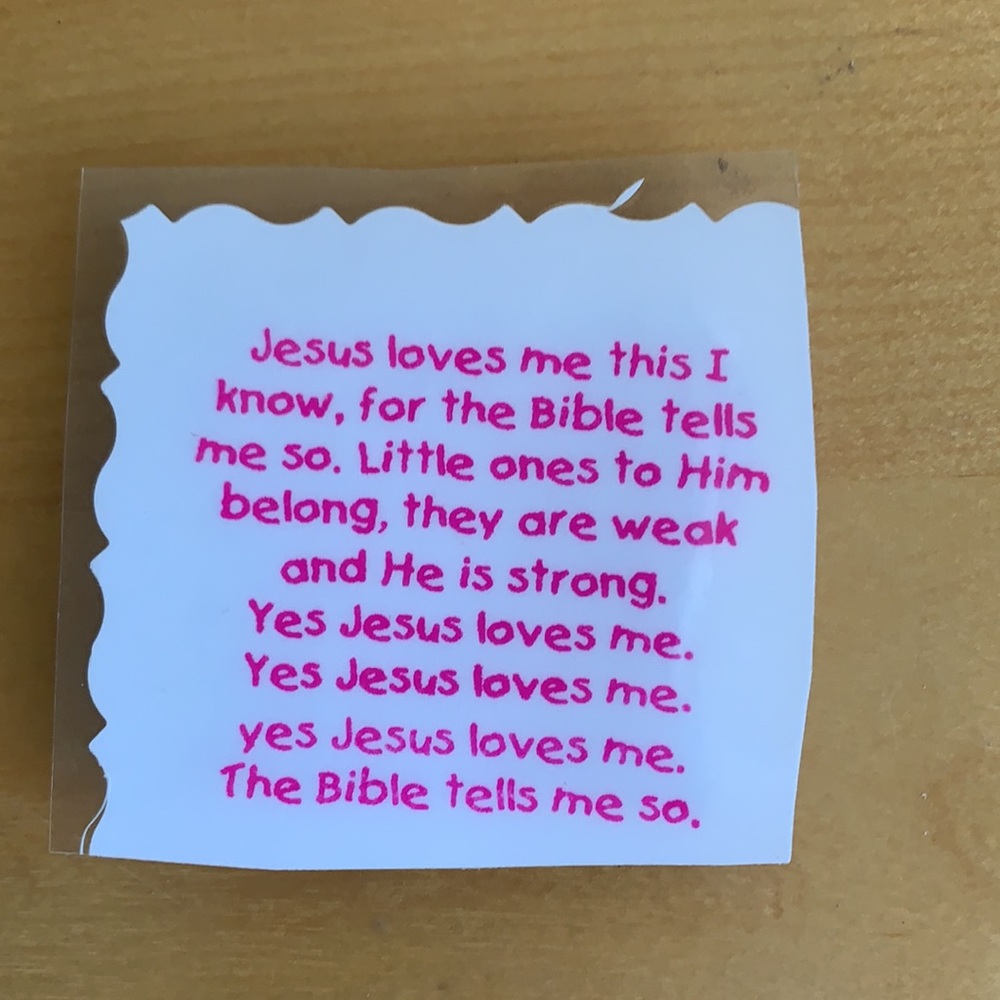 Jesus loves me this I
know, for the Bible tells
me so. Little ones to Him
belong, they are weak
and He is strong.
Yes Jesus loves me.
Yes Jesus loves me.
yes Jesus loves me.
The Bible tells me so.